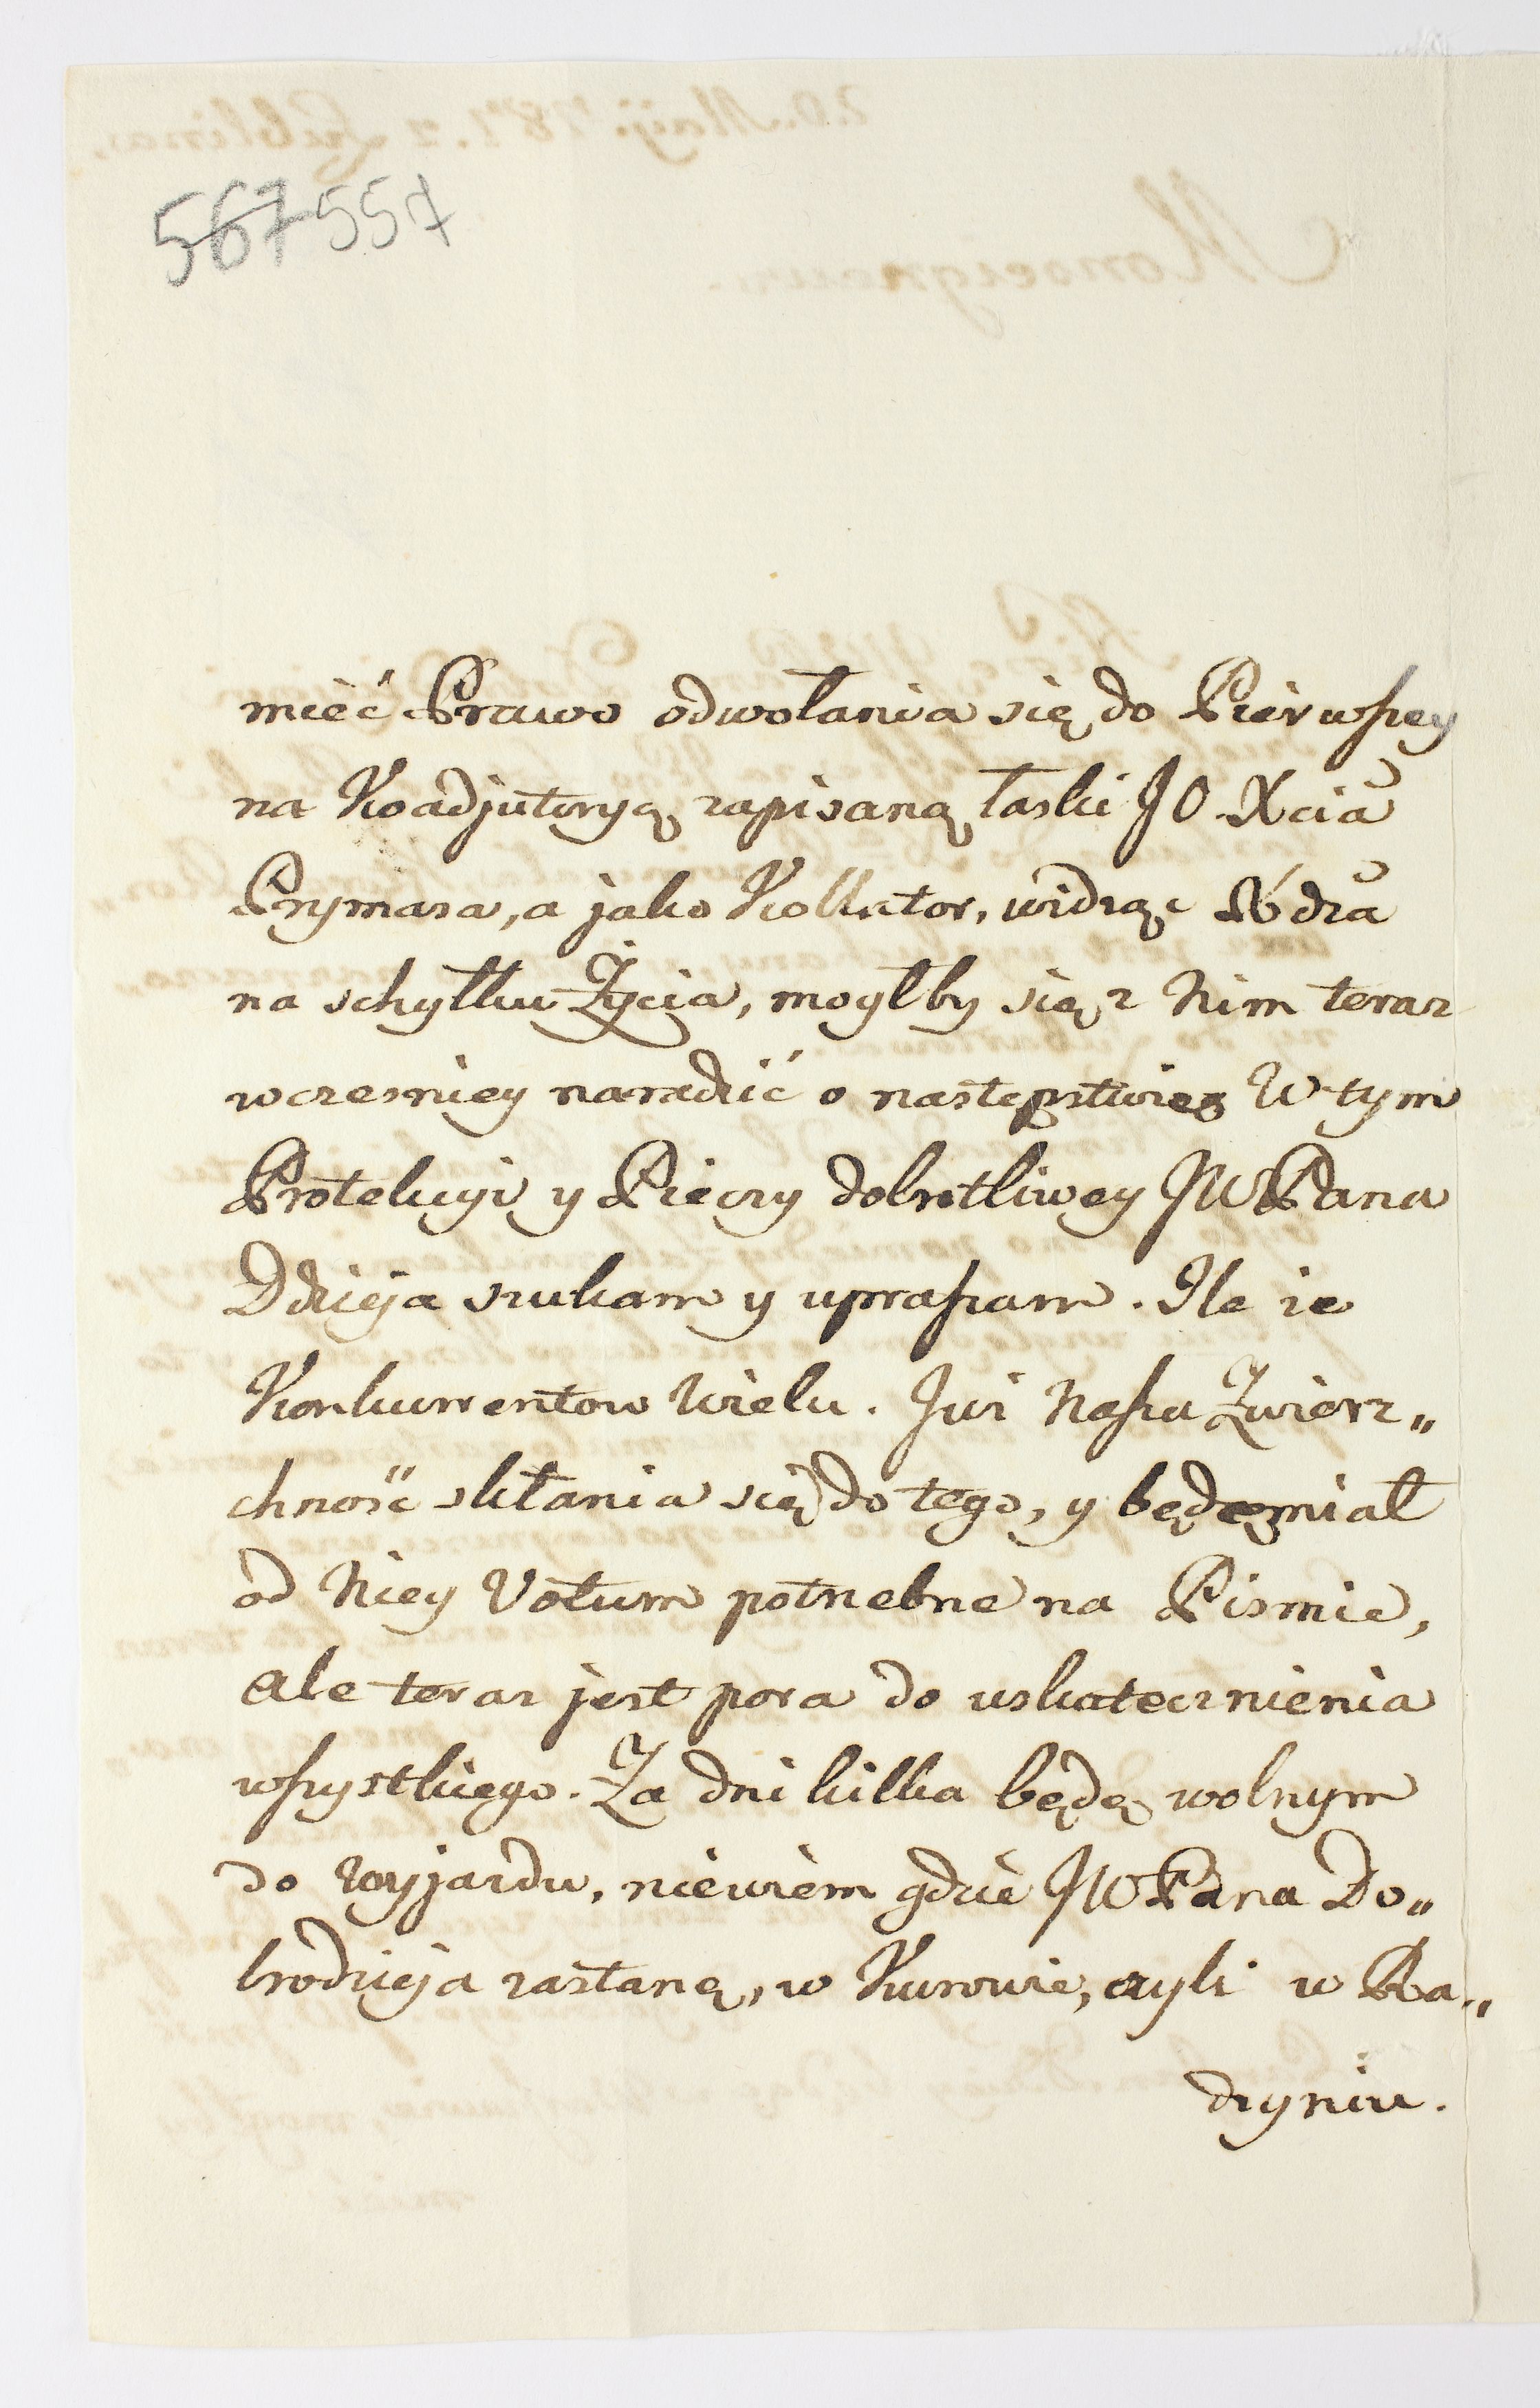 567 557
mieć Prawo odwołania się do Pierwszey
na Koadjutoryą zapisaną łaski JO. Xcia
Prymasa, a jako Kollator, widząc
na schyłku Życia, mogłby się z Nim teraz
wczesniey naradzić o następstwie. W tym
Protekcyi y Pieczy dobrotliwey JWPana
Ddzieja szukam y upraszam. Ile że
Konkurrentow Wielu. Już Nasza Zwierz„
chność skłania się do tego, y będę miał
od Niey Votum potrzebne na Pismie,
ale teraz jest pora do uskutecznienia
wszystkiego. Za dni kilka będę wolnym
do Wyjazdu, niewiem gdzie JWPana Do„
brodzieja zastanę, w Kurowie, czyli w Ra„
dzyniu.